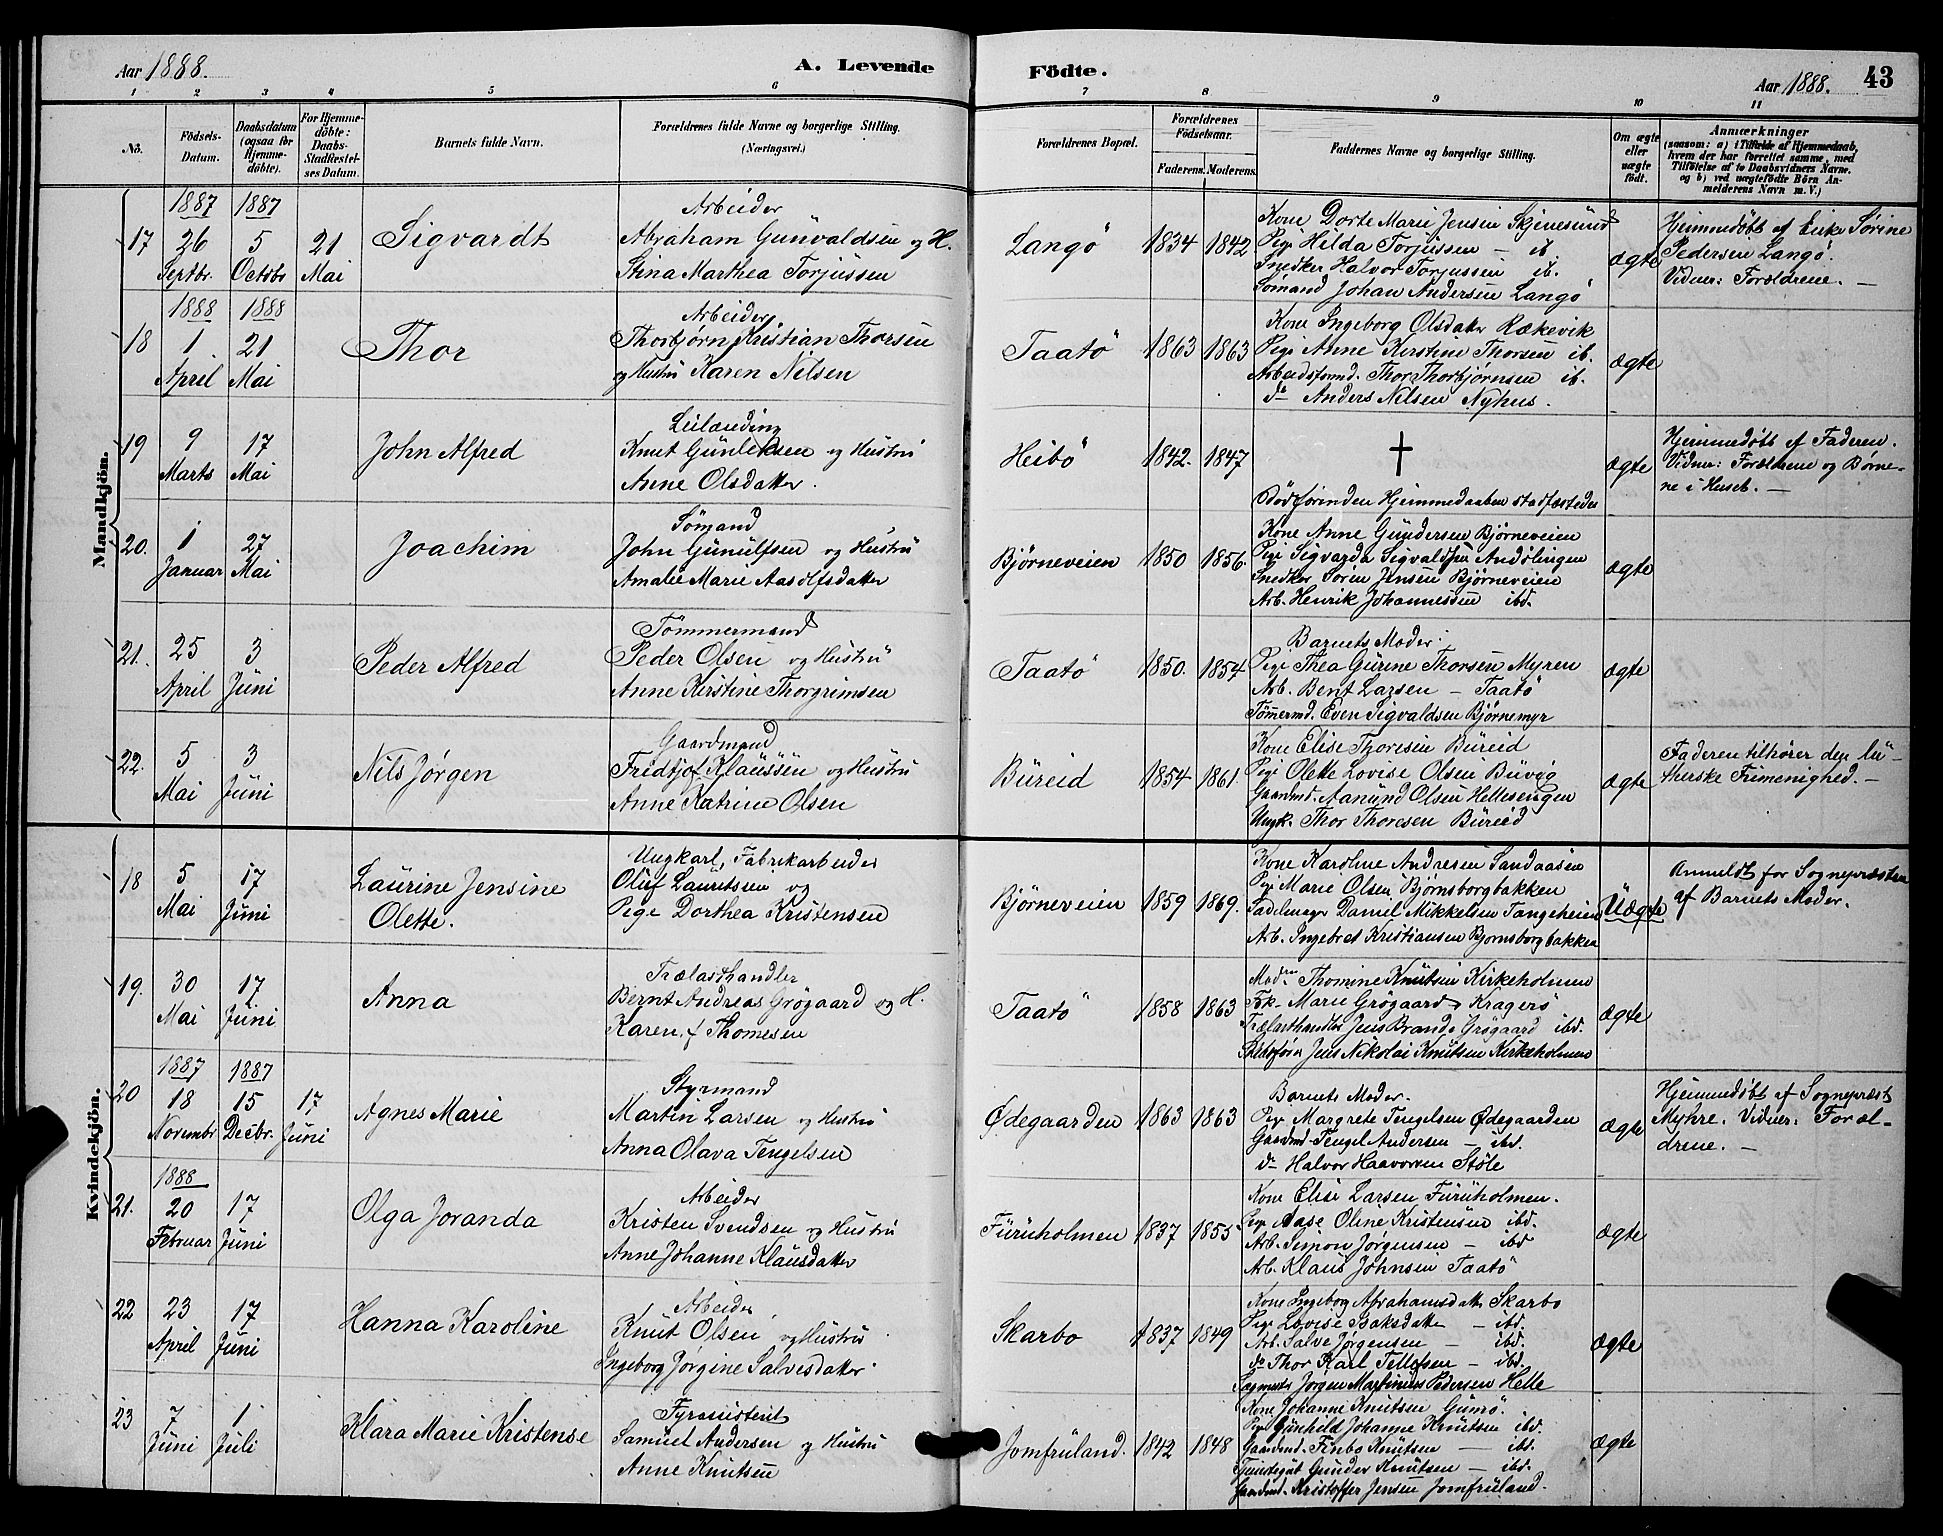 Aar 1888. A. Levende Födte. Aar 1888. 43
1 2 3 4 5 6 7 8 9 10 11
No.
Födsels-Datum.
Daabsdatum (ogsaa for Hjemme-döbte).
For Hjemme-döbte: Daabs-Stadfæstel-ses Datum.
Barnets fulde Navn.
Forældrenes fulde Navne og borgerlige Stilling.
(Næringsvei.)
Forældrenes Bopæl.
Forældrenes Födselsaar.
Faderens. Moderens.
Faddernes Navne og borgerlige Stilling.
Om ægte eller uægte födt.
Anmærkninger
(saasom: a) i Tilfælde af Hjemmedaab,
hvem der har forrettet samme, med
Tilföielse af to Daabsvidners Navne.
og b) ved uægtefödte Börn An-
melderens Navn m. V.)
Mandkjön.
17 1887 26 Septbr. 1887 5 Octobr 21 Mai
Sigvardt
Arbeider
Abraham Gunvaldsen og H.
Stina Marthea Torjussen
Langö 1834 1842
Kone Dorte Marie Jensen Skjensund
Pige Hilda Torjussen — ib.
Snedker Halvor Torjussen ib.
Sømand Johan Andersen Langö
ægte
Hjemmedøbt af Enke Sørine
Pedersen Langö.
Vidner: Forældrene. —
18 1888 1 April 1888 21 Mai
Thor
Arbeider
Thorbjørn Kristian Thorsen
og Hustru Karen Nilsen
Taatö 1863 1863
Kone Ingeborg Olsdatter Rækevik
Pige Anne Kirstine Thorsen ib.
Arbeidsformd. Thor Thorbjørnsen ib.
do Anders Nilsen Nyhus.
ægte
19 9 Marts 17 Mai
John Alfred
Leilænding
Knut Gunleksen og Hustru
Anne Olsdatter.
Heibö 1842. 1847
†
Död förinden Hjemmedaaben stadfæstedes
ægte
Hjemmedøbt af Faderen.
Vidner: Forældrene og Børne-
ne i Huset. —
20. 1 Januar 27 Mai
Joachim
Sømand
John Gunulfsen og Hustru
Amalie Marie Aasolfsdatter
Bjørneveien 1850 1856.
Kone Anne Gundersen Bjørneveien
Pige Sigvarda Sigvaldsen Andølingen
Snedker Soren Jensen Bjørneveien
Arb. Henrik Johannessen ibd.
ægte
21. 25 April 3 Juni
Peder Alfred
Tömmermand
Peder Olsen og Hustru
Anne Kirstine Thorgrimsen
Taatö 1850. 1854
Barnets Moder.
Pige Thea Gurine Thorsen Myren
Arb. Bent Larsen — Taatö
Tömermd. Even Sigvaldsen Bjørnemyr
ægte
22. 5 Mai 3 Juni
Nils Jørgen
Gaardmand
Fridtjof Klaussen og Hustru
Anne Katrine Olsen
Bureid 1854 1861.
Kone Elise Thoresen Bureid
Pige Olette Lovise Olsen Buvig
Gaardmd. Aanund Olsen Hellesengen
Ungk. Thor Thoresen Bureid
ægte
Faderen tilhører den lu-
therske Frimenighed. —
Kvindekjön.
18 5 Mai 17 Juni
Laurine Jensine
Olette.
Ungkarl, Fabrikarbeider
Oluf Lauritsen og
Pige Dorthea Kristensen
Bjørneveien 1859 1869.
Kone Karoline Andresen Sandaasen
Pige Marie Olsen Bjørnsborgbakken
Sadelmager Daniel Mikkelsen Tangeheien
Arb. Ingebret Kristiansen Bjørnsborgbakken
Uægte
Anmeldt for Sognepræsten
af Barnets Moder.
19. 30 Mai 17 Juni
Anna
Trælasthandler
Bernt Andreas Grögaard og H.
Karen, f. Thomesen
Taatö 1858 1863
Madm Thomine Knutsen Kirkeholmen
Frk. Marie Grögaard Kragerö
Trælasthandler Jens Brande Grögaard ibd.
Skibsfører Jens Nikolai Knutsen Kirkeholmen
ægte
20 1887 18 Novembr 1887 15 Decbr. 17 Juni
Agnes Marie
Styrmand
Martin Larsen og Hustru
Anna Olava Tengelsen
Ødegaarden 1863 1863
Barnets Moder.
Pige Margrete Tengelsen Ødegaarden
Gaardmd Tengel Andersen — ibd.
do Halvor Haavorsen Støle
ægte
Hjemmedøbt af Sognepræst
Myhre. Vidner: Foræl-
drene. —
21. 1888 20 Februar 17 Juni
Olga Joranda
Arbeider
Kristen Svendsen og Hustru
Anne Johanne Klausdatter
Furuholmen 1837 1855
Kone Elise Larsen Furuholmen.
Pige Aase Oline Kristensen ibd.
Arb. Simon Jørgensen — ibd
Arb. Klaus Johnsen Taatö
ægte
22 23 April 17 Juni
Hanna Karoline
Arbeider
Knut Olsen og Hustru
Ingeborg Jørgine Salvesdatter.
Skarbo 1837 1849
Kone Ingeborg Abrahamsdatter Skarbo
Pige Lovise Baksdatter — ibd.
Arb. Salve Jørgensen — ibd.
do Thor Karl Tellefsen — ibd.
Sagmester Jørgen Martinius Pedersen Helle
ægte
23 7 Juni 1 Juli
Klara Marie Kristense
Fyrassistent
Samuel Andersen og Hustru
Anne Knutsen
Jomfruland. 1842 1848
Kone Johanne Knutsen Gumö.
Pige Gunhild Johanne Knutsen ibd.
Gaardmd. Finbo Knutsen — ibd.
Gunder Knutsen — ibd.
Gaardmd. Kristoffer Jensen Jomfruland.
ægte